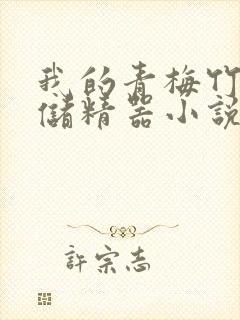 我的青梅竹
儲精器小說
許宗志